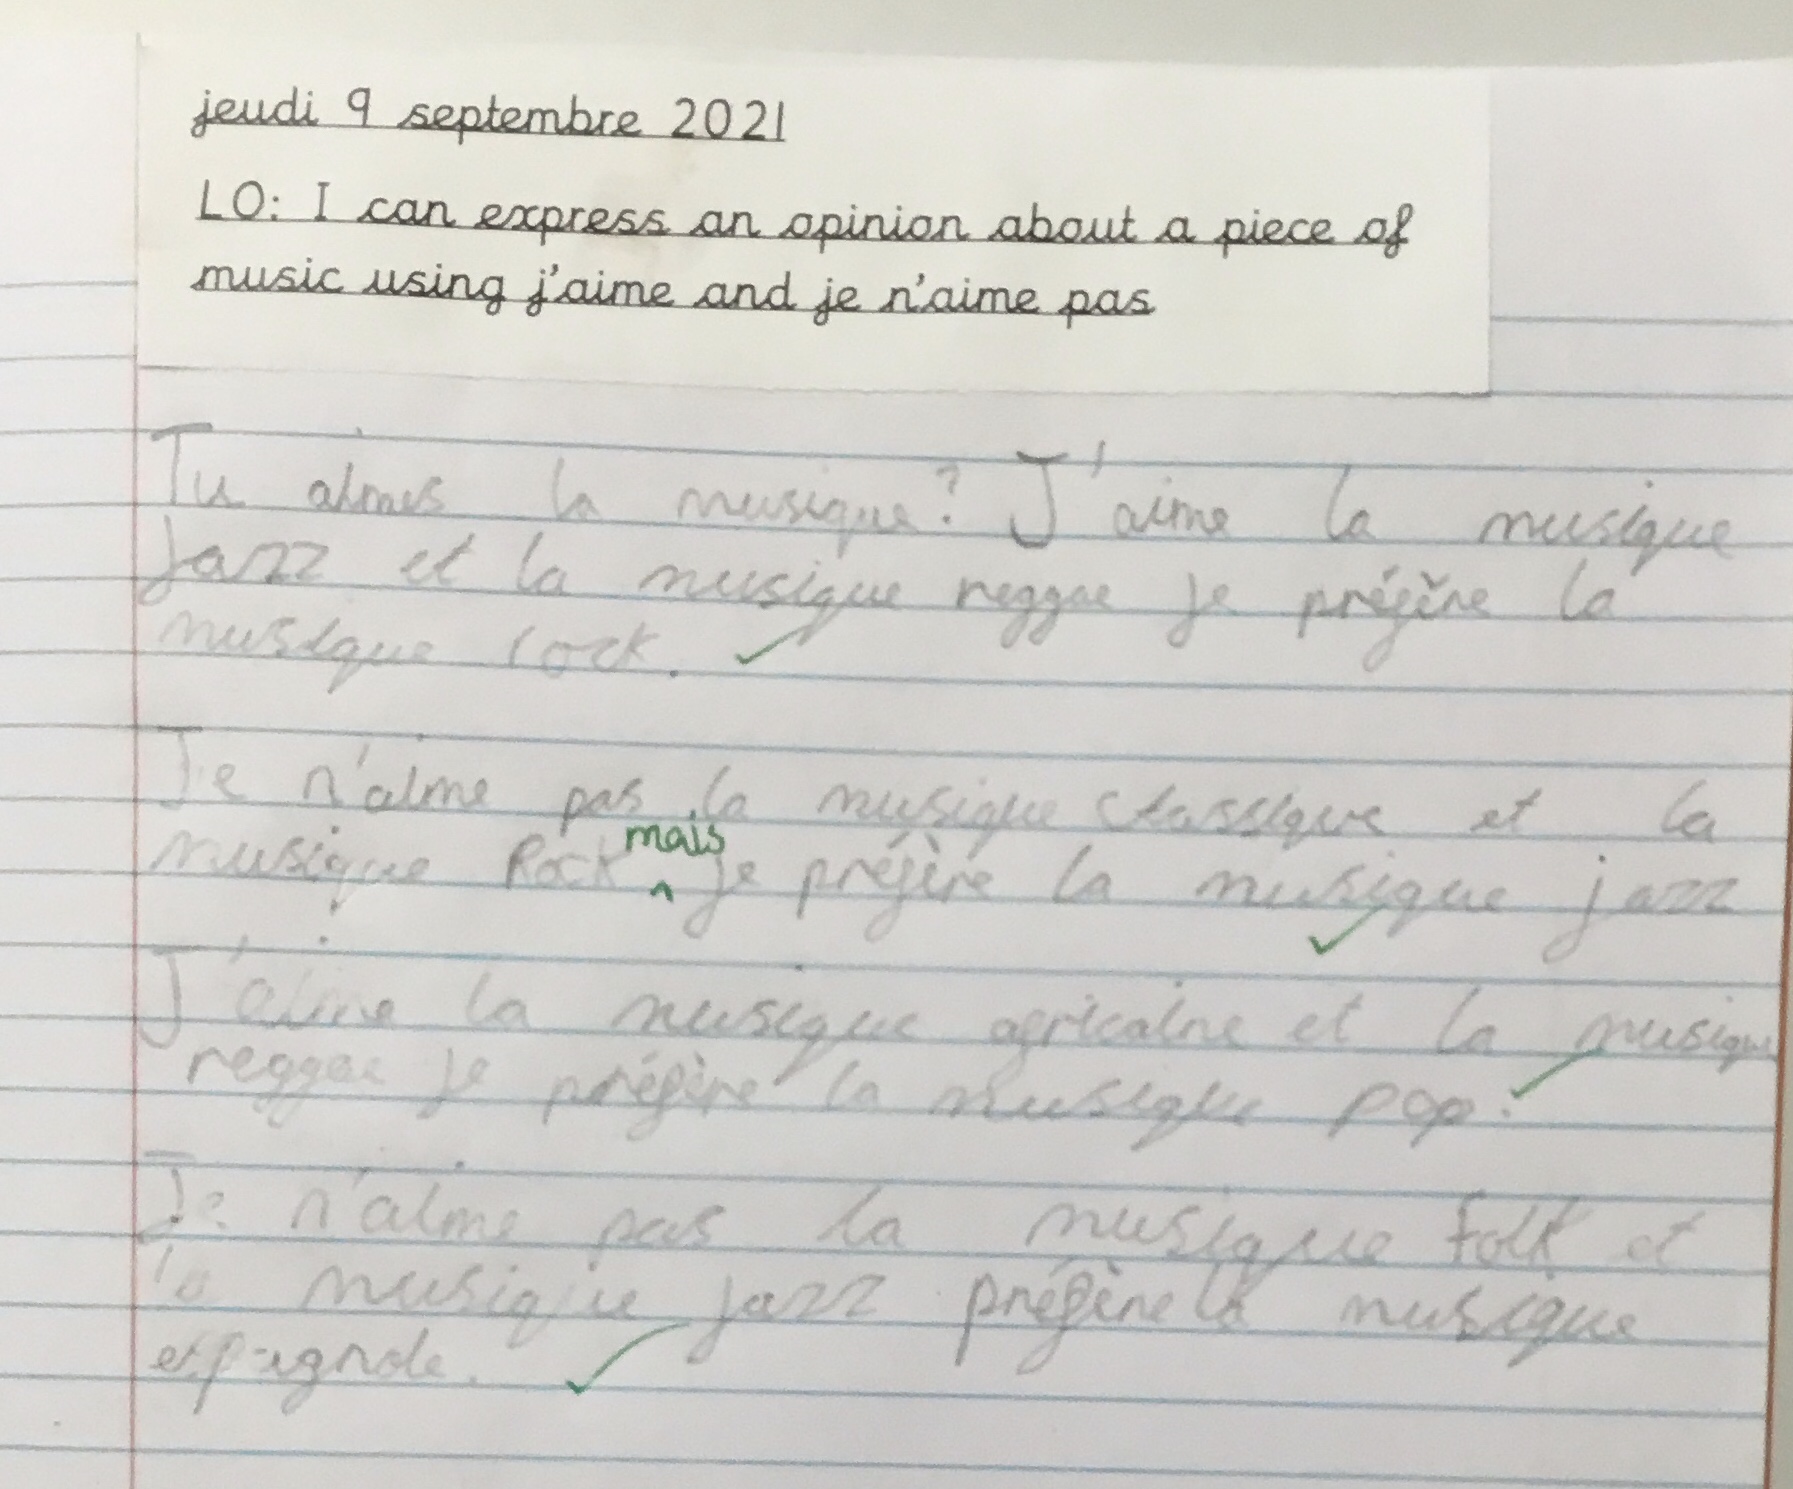 jeudi 9 septembre 2021
LO: I can express an opinion about a piece of
music using j'aime and je n'aime pas
Tu aimes la musique? J'aime la musique
jazz et la musique reggae je préfère la
musique rock.
Je n'aime pas la musique classique et la
musique Rock mais je préfère la musique jazz
J'aime la musique africaine et la musique
reggae je préfère la musique pop.
Je n'aime pas la musique folk et
la musique jazz préfère la musique
espagnole.